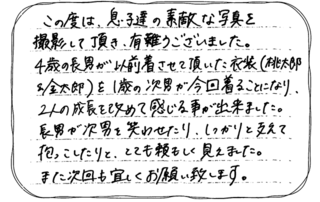 この度は、息子達の素敵な写真を
撮影して頂き、有難うございました。
4歳の長男が以前着させて頂いた衣装(桃太郎
&金太郎)を1歳の次男が今回着ることになり、
2人の成長を改めて感じる事が出来ました。
長男が次男を笑わせたり、しっかりと支えて
抱っこしたりと、とても頼もしく見えました。
また次回も宜しくお願い致します。